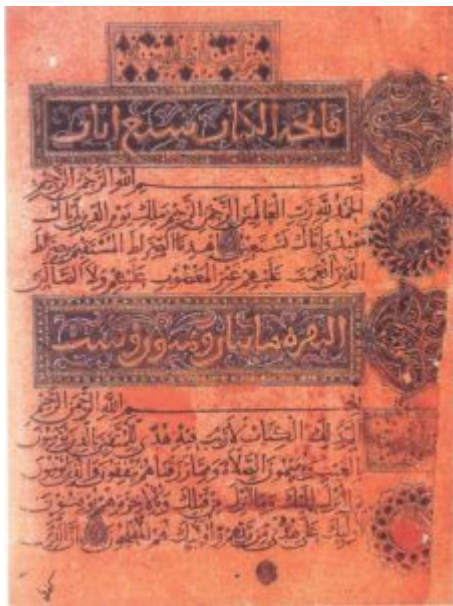 فاتحة الكتاب سبع ايات
بسم الله الرحمن الرحيم
الحمد لله رب العالمين الرحمن الرحيم ملك يوم الدين اياك
نعبد واياك نستعين اهدنا الصراط المستقيم صراط
الذين انعمت عليهم غير المغضوب عليهم ولا الضالين
البقره مايتان وست
بسم الله الرحمن الرحيم
الم ذلك الكتاب لا ريب فيه هدى للمتقين الذين يؤمنون
بالغيب ويقيمون الصلاة ومما رزقناهم ينفقون والذين يؤمنون
بما انزل اليك وما انزل من قبلك وبالاخرة هم يوقنون
اولئك على هدى من ربهم واولئك هم المفلحون ان الذين